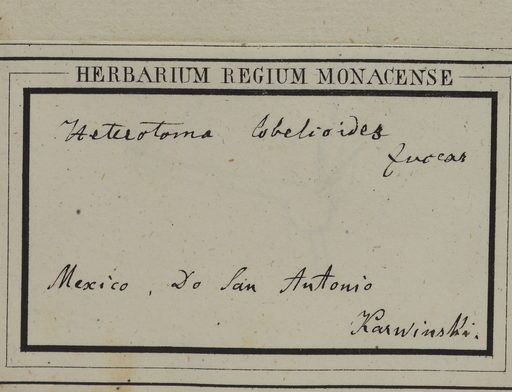 HERBARIUM REGIUM MONACENSE
Heterotoma lobelioides
Zuccar
Mexico, Do San Antonio
Karwinski.